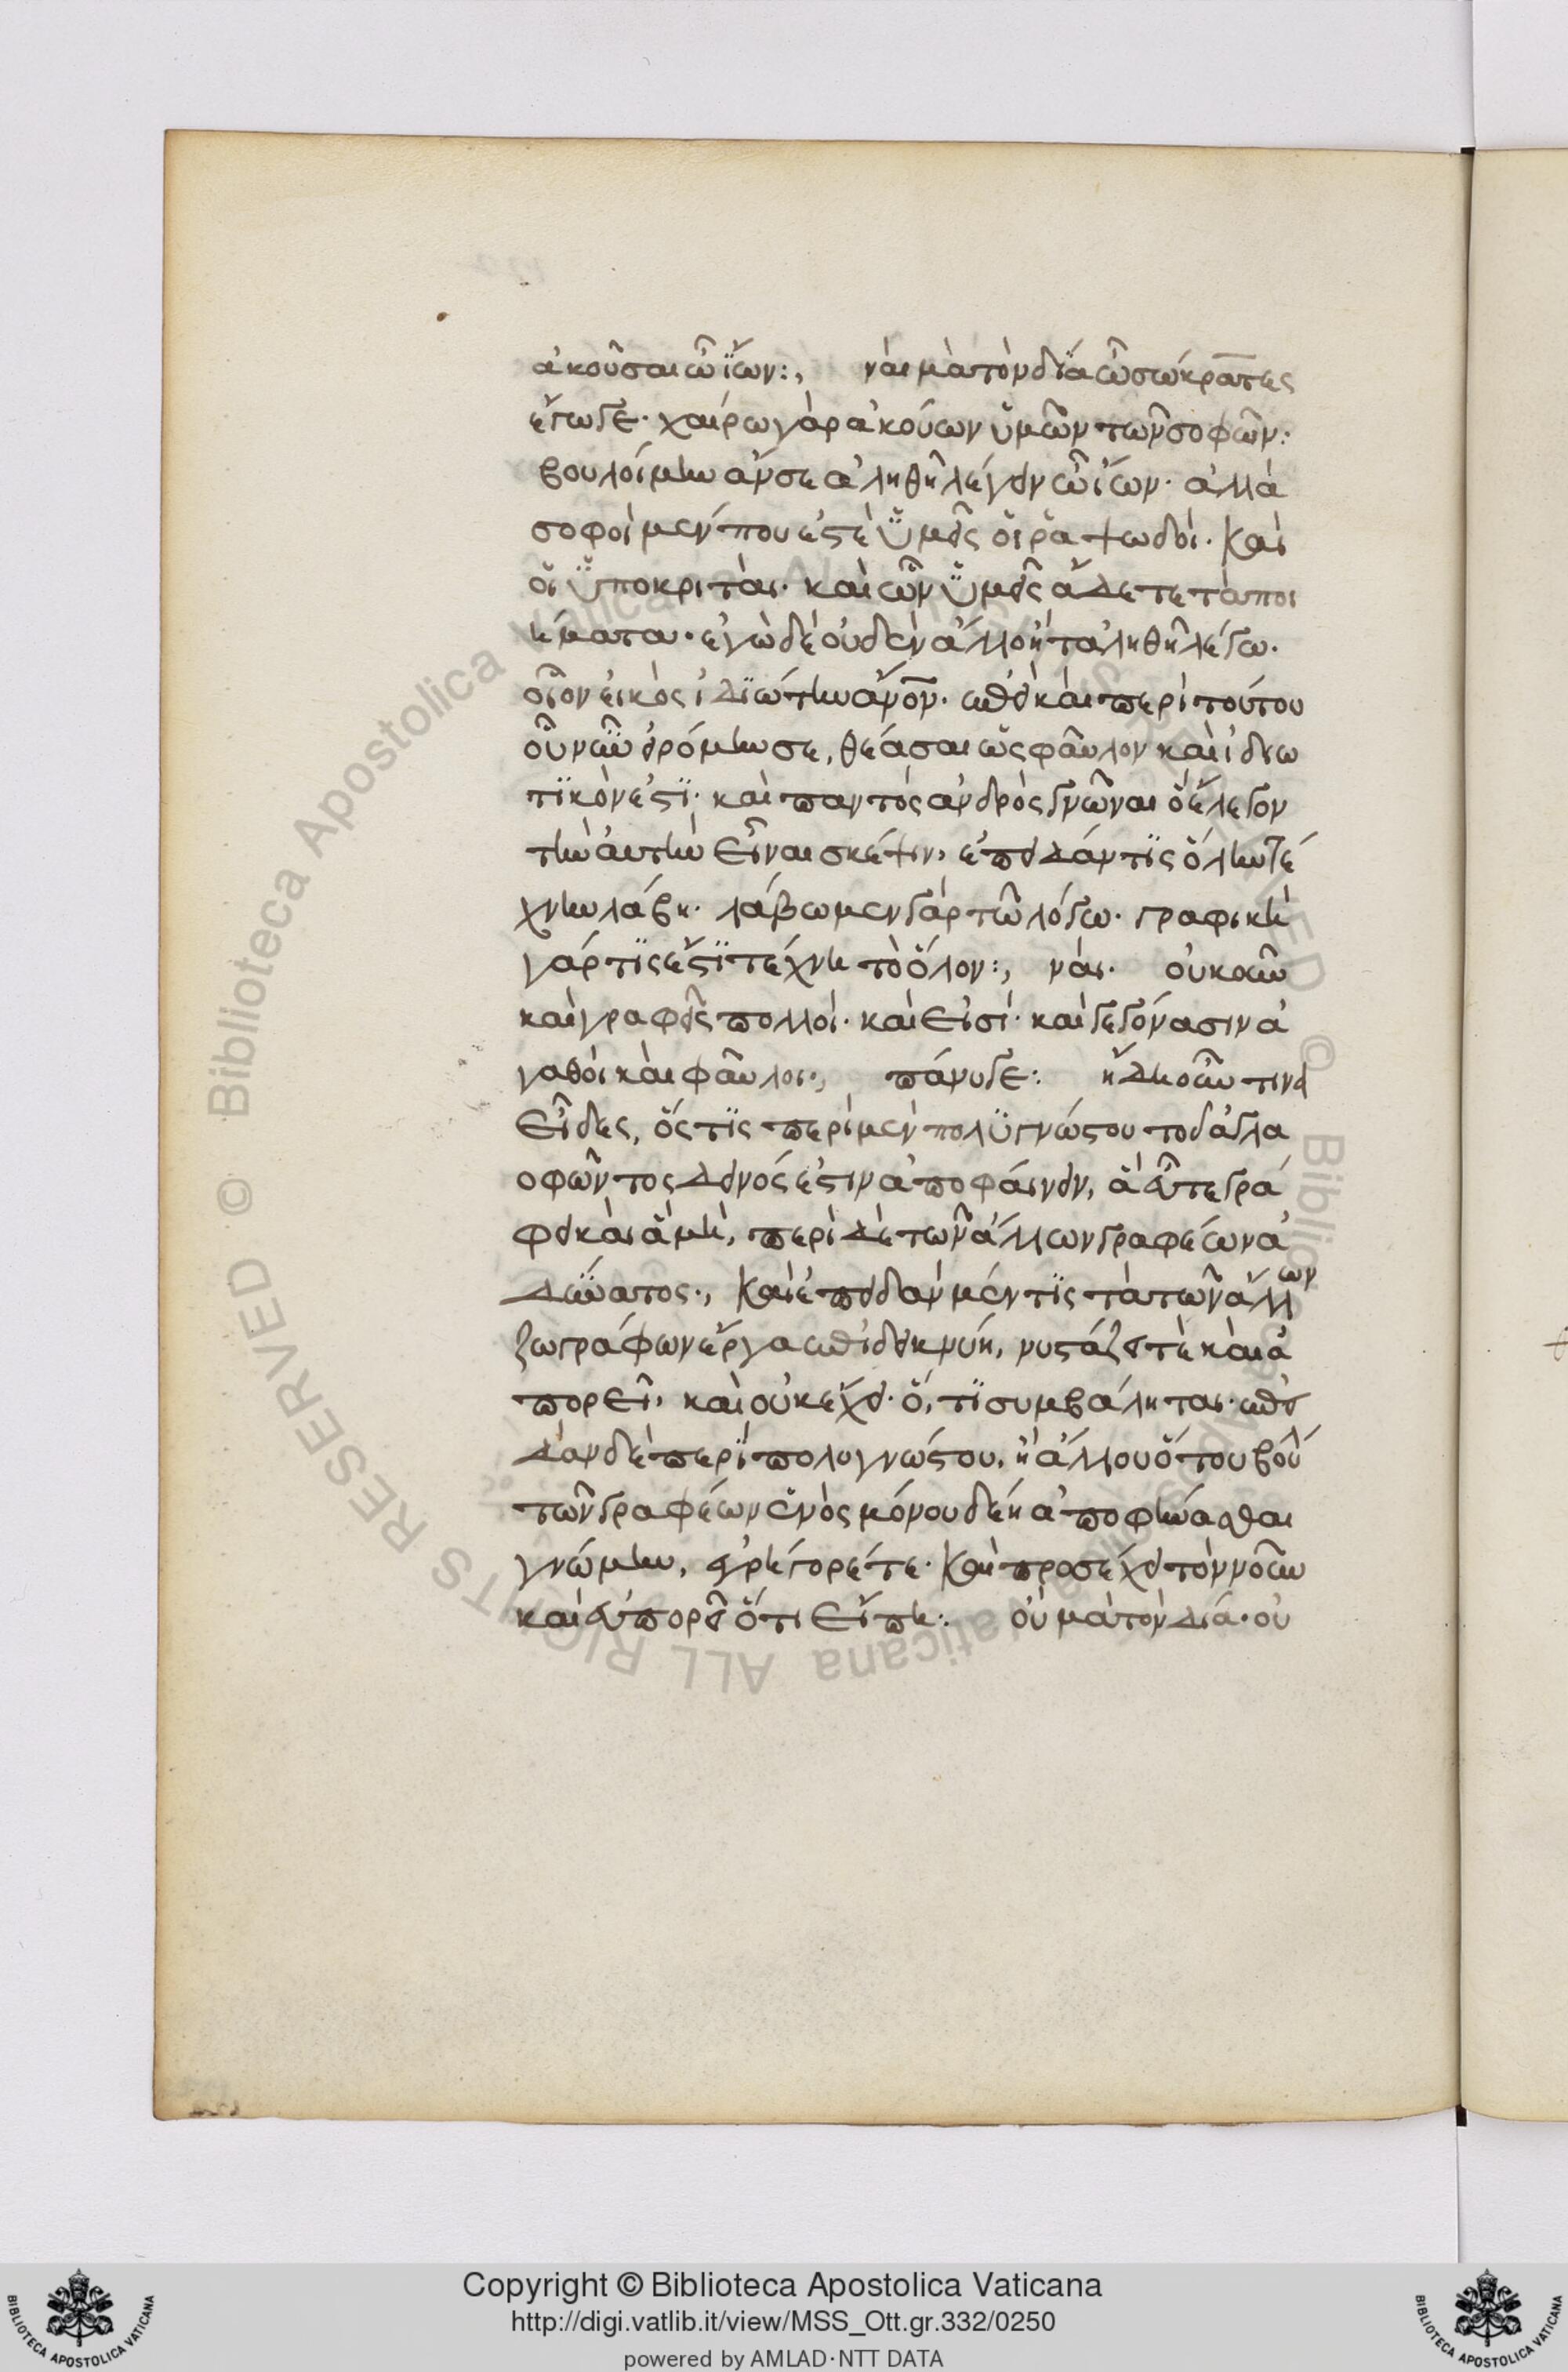 ἀκοῦσαι ὦ ἴων:, ναὶ μὰ τὸν δία ὦ σώκρατες
ἔγωγε· χαίρω γὰρ ἀκούων ὑμῶν τῶν σοφῶν:
βουλοίμην ἄν σε ἀληθῆ λέγειν ὦ ἴων· ἀλλὰ
σοφοὶ μέν που ἐστὲ ὑμεῖς οἱ ῥαψωδοὶ· καὶ
οἱ ὑποκριταὶ· καὶ ὧν ὑμεῖς ἄδετε τὰ ποι
ήματα· ἐγὼ δὲ οὐδὲν ἄλλο ἢ τἀληθῆ λέγω·
οἷον εἰκὸς ἰδιώτην ἄνον· ἐπεὶ καὶ περὶ τούτου
οὗ νῦν ἠρόμην σε, θέασαι ὡς φαῦλον καὶ ἰδιω
τικόν ἐστι· καὶ παντὸς ἀνδρὸς γνῶναι ὃ ἔλεγον
τὴν αὐτὴν εἶναι σκέψιν, ἐπειδάν τις ὅλην τέ
χνην λάβη· λάβωμεν γὰρ τῶ λόγω· γραφικὴ
γάρ τις ἐστὶ τέχνη τὸ ὅλον:, ναὶ· οὐκοῦν
καὶ γραφεῖς πολλοὶ· καὶ εἰσὶ· καὶ γεγόνασιν ἀ
γαθοὶ καὶ φαῦλοι:, πάνυ γε: ἤδη οὖν τινὰ
εἶδες, ὅς τις περὶ μὲν πολυγνώτου τοῦ ἀγλα
οφῶντος δεινός ἐστιν ἀποφαίνειν, ἃ εὖ τε γρά
φει καὶ ἃ μὴ, περὶ δὲ τῶν ἄλλων γραφέων ἀ
δύνατος:, καὶ ἐπειδὰν μέν τις τὰ τῶν ἄλλων
ζωγράφων ἔργα ἐπιδεικνύη, νυστάζει τὲ καὶ ἀ
πορεῖ, καὶ οὐκ ἔχει· ὅ,τι συμβάληται· ἐπει
δὰν δὲ περὶ πολυγνώτου, ἢ ἄλλου ὅτου βούλ
τῶν γραφέων ἑνὸς μόνου δέη ἀποφήνασθαι
γνώμην, ἐγρήγορέ τε· καὶ προσέχει τὸν νοῦν
καὶ εὐπορεῖ ὅτι εἴπη: οὐ μὰ τὸν δία· οὐ
Copyright © Biblioteca Apostolica Vaticana
http://digi.vatlib.it/view/MSS_Ott.gr.332/0250
powered by AMLAD·NTT DATA
BIBLIOTECA APOSTOLICA VATICANA
BIBLIOTECA APOSTOLICA VATICANA